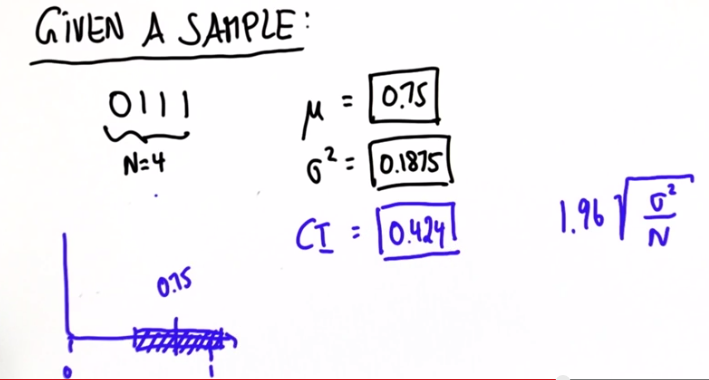 GIVEN A SAMPLE:
0111
N=4
μ = 0.75
σ² = 0.1875
CI = 0.424
1.96 √(σ²/N)
0.75
0 1